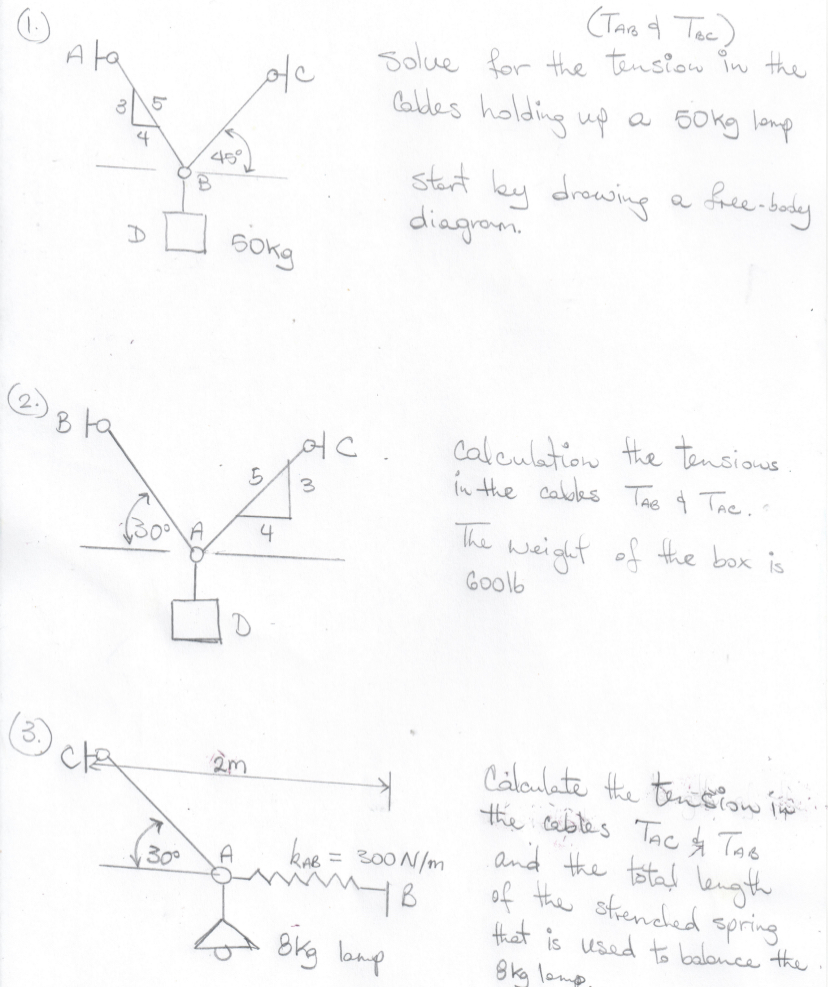 (1.)
(TAB & TBC)
Solve for the tension in the
Cables holding up a 50kg lamp
Start by drawing a free-body
diagram.
A
C
3 5
4
45°
B
D 50kg
(2.)
B
C
5 3
4
30° A
D
Calculation the tensions
in the cables TAB & TAC.
The weight of the box is
600lb
(3.)
C
2m
30° A
kAB = 300N/m
B
8kg lamp
Calculate the tension in
the cables TAC & TAB
and the total length
of the strenched spring
that is used to balance the
8kg lamp.